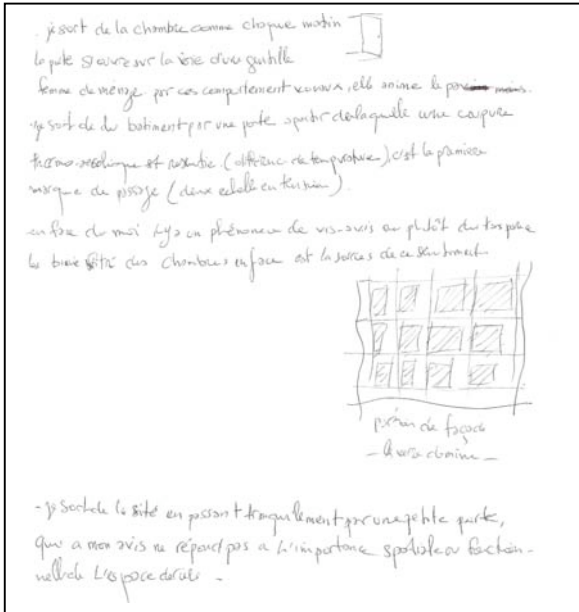 . je sort de la chambre comme chaque matin
la porte s'ouvre sur la voie d'une gentille
femme de menage par ces comportement, elle anime le
- je sort de du batiment par une porte apartir de laquelle une coupure
thermo- est resentie (différence de température), c'est la premiere
marque de passage (deux echelle en tension).
en face du moi il y a un phénomene de vis-avis ou plutôt du
la baie vitré des chambres en face est la sources de ce sentiment.
de façade
- le verre domine -
- je sort de la sité en passant tranquillement par une petite porte,
qui a mon avis ne répond pas a l'importance spatiale ou fonction-
nelle de L'espace